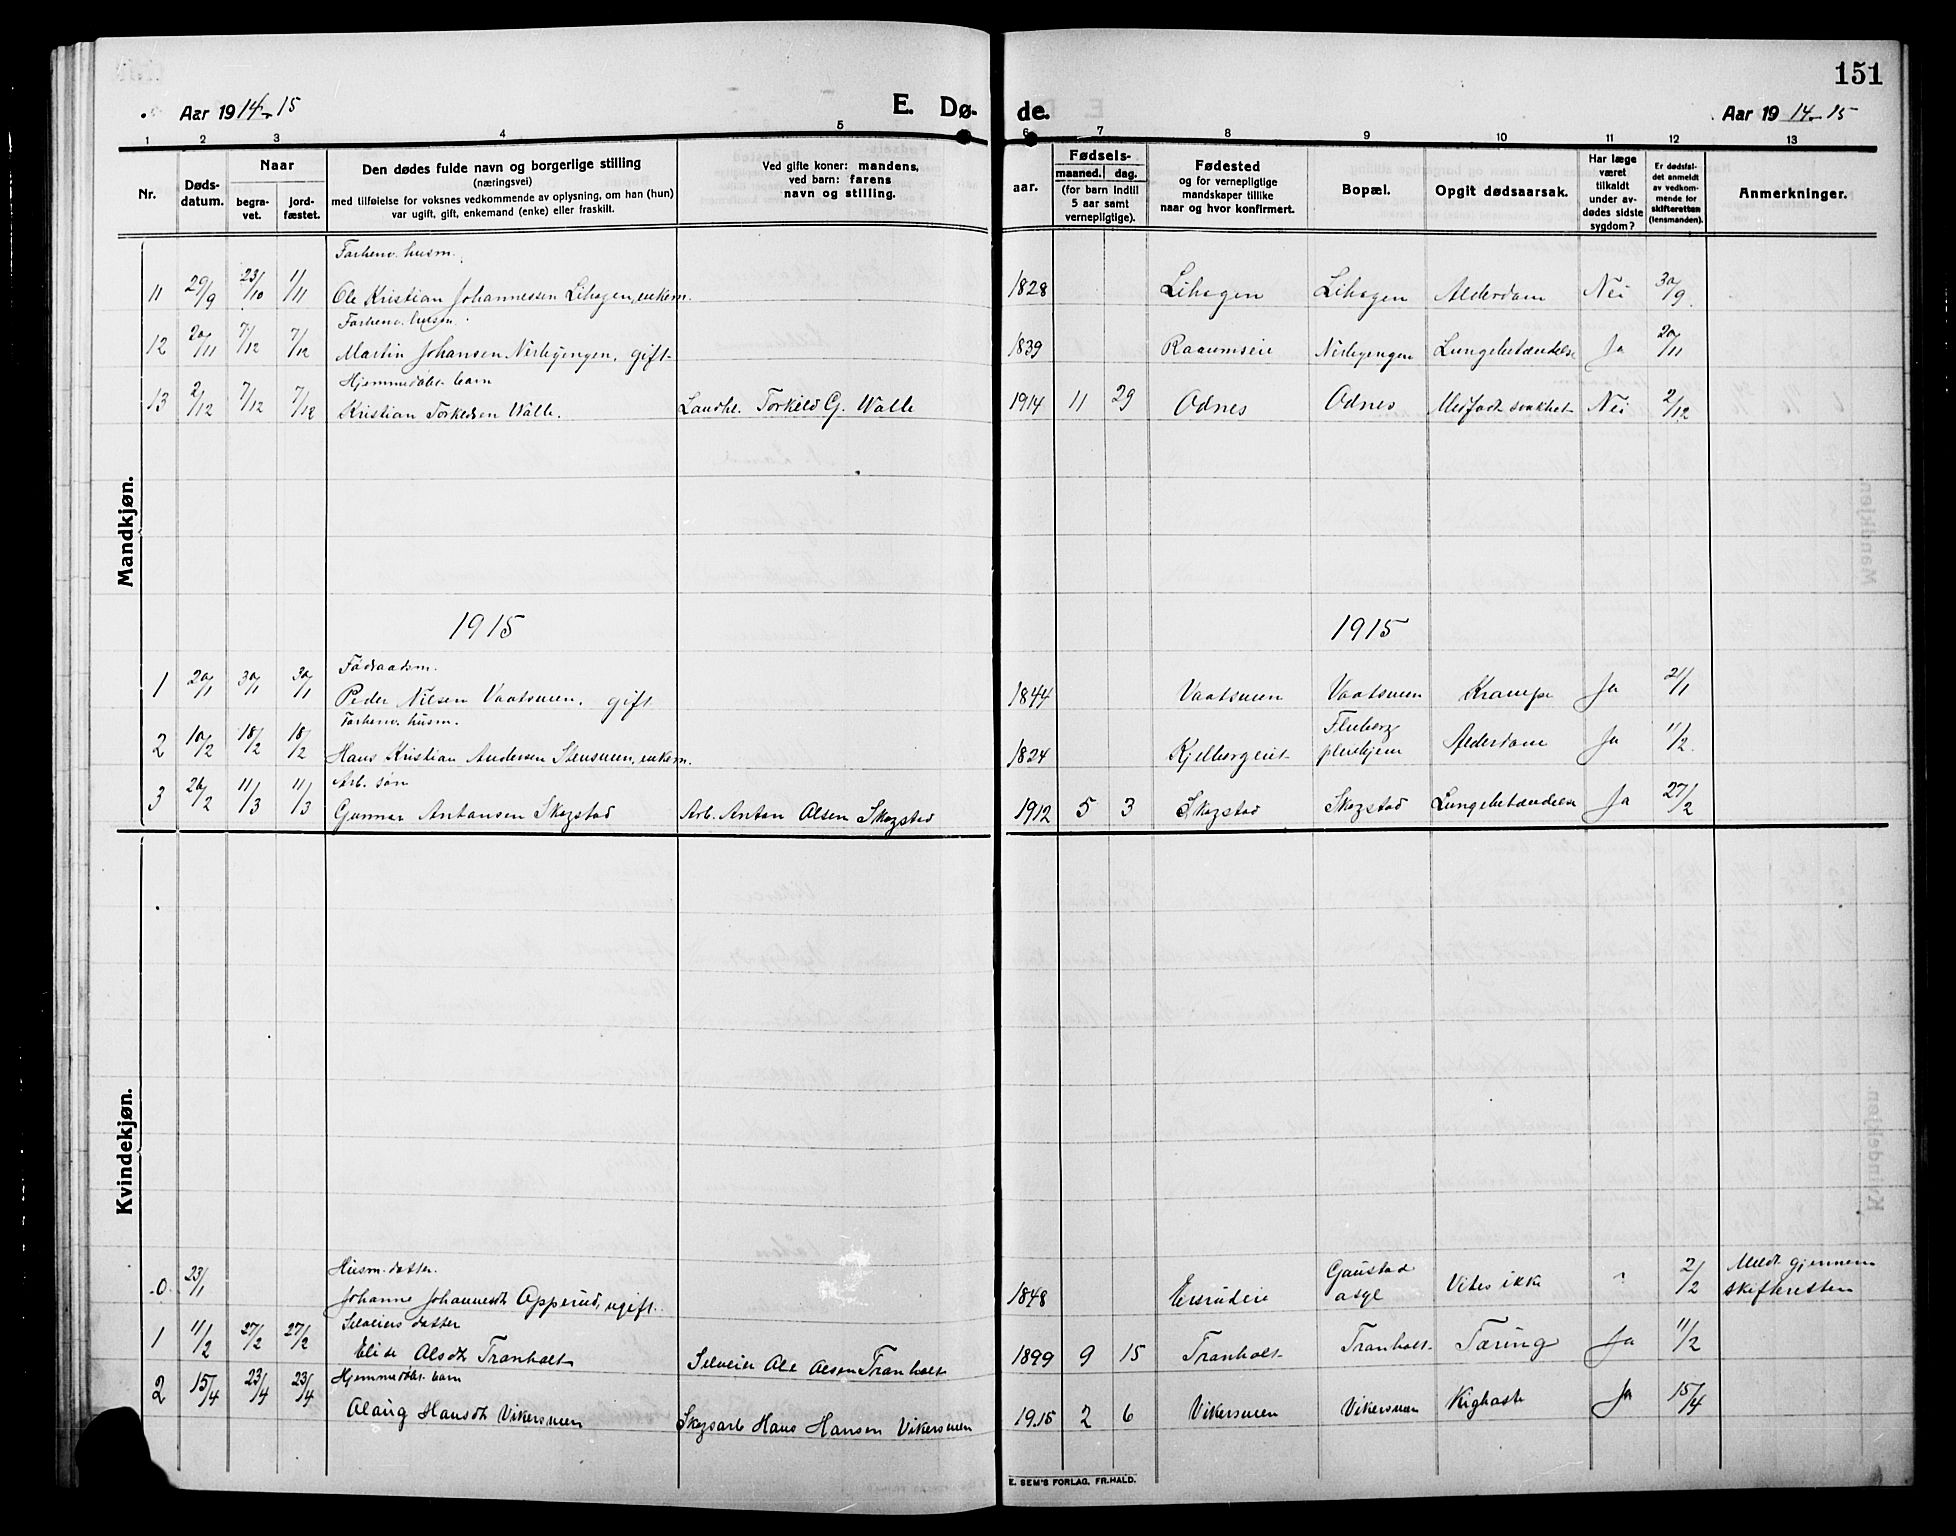 151
Aar 1914-15
E. Dø-
de.
Aar 1914-15
1 2 3 4 5 6 7 8 9 10 11 12 13
Nr.
Døds-
datum.
Naar
begra-
vet.
jord-
fæstet.
Den dødes fulde navn og borgerlige stilling
(næringsvei)
med tilføielse for voksnes vedkommende av oplysning, om han (hun)
var ugift, gift, enkemand (enke) eller fraskilt.
Ved gifte koner: mandens,
ved barn: farens
navn og stilling.
aar.
Fødsels-
maaned. dag.
(for barn indtil
5 aar samt
vernepligtige).
Fødested
og for vernepligtige
mandskaper tillike
naar og hvor konfirmert.
Bopæl.
Opgit dødsaarsak.
Har læge
været
tilkaldt
under av-
dødes sidste
sygdom?
Er dødsfal-
det anmeldt
av vedkom-
mende for
skifteretten
(lensmanden).
Anmerkninger.
Mandkjøn.
Forhenv. husm.
11 29/9 23/10 1/11 Ole Kristian Johannessen Lihagen, enkem. 1828 Lihagen Lihagen Alderdom Nei 30/9
Forhenv. husm.
12 20/11 7/12 7/12 Martin Johansen gift 1839 Raaumseie Lungebetændelse Ja 20/11
Hjemmedøbt barn
13 2/12 7/12 7/12 Kristian Torkildsen Walle. Landhl. Torkild G. Walle 1914 11 29 Odnes Odnes Medfødt svakhet Nei 2/12
1915 1915
Føderaadsm.
1 20/1 30/1 30/1 Peder Nilsen Vaatsveen, gift 1844 Vaatsveen Vaatsveen Krampe Ja 21/1
Forhenv. husm.
2 10/2 18/2 18/2 Hans Kristian Andersen Stensveen, enkem. 1824 Kjelborgeiet Fluberg
pleiehjem Alderdom Ja 11/2
Arb. søn
3 26/2 11/3 11/3 Gunnar Antonsen Skogstad Arb. Anton Olsen Skogstad 1912 5 3 Skogstad Skogstad Lungebetændelse Ja 27/2
Kvindekjøn.
Husm. datter.
0 23/1 Johanne Johannesdt. Opperud, ugift. 1848 Gaustad
asyl Vites ikke ? 2/2 Meldt gjennem
skifteretten
Selveiers datter
1 11/2 27/2 27/2 Elise Olsdt. Tranholt Selveier Ole Olsen Tranholt 1899 9 15 Tranholt Tranholt Tæring Ja 11/2
Hjemmedøbt barn
2 15/4 23/4 23/4 Olaug Hansdt. Vikersveen Skogsarb. Hans Hansen Vikersveen 1915 2 6 Vikersveen Vikersveen Kighoste Ja 15/4
E. SEM'S FORLAG, FR.HALD.